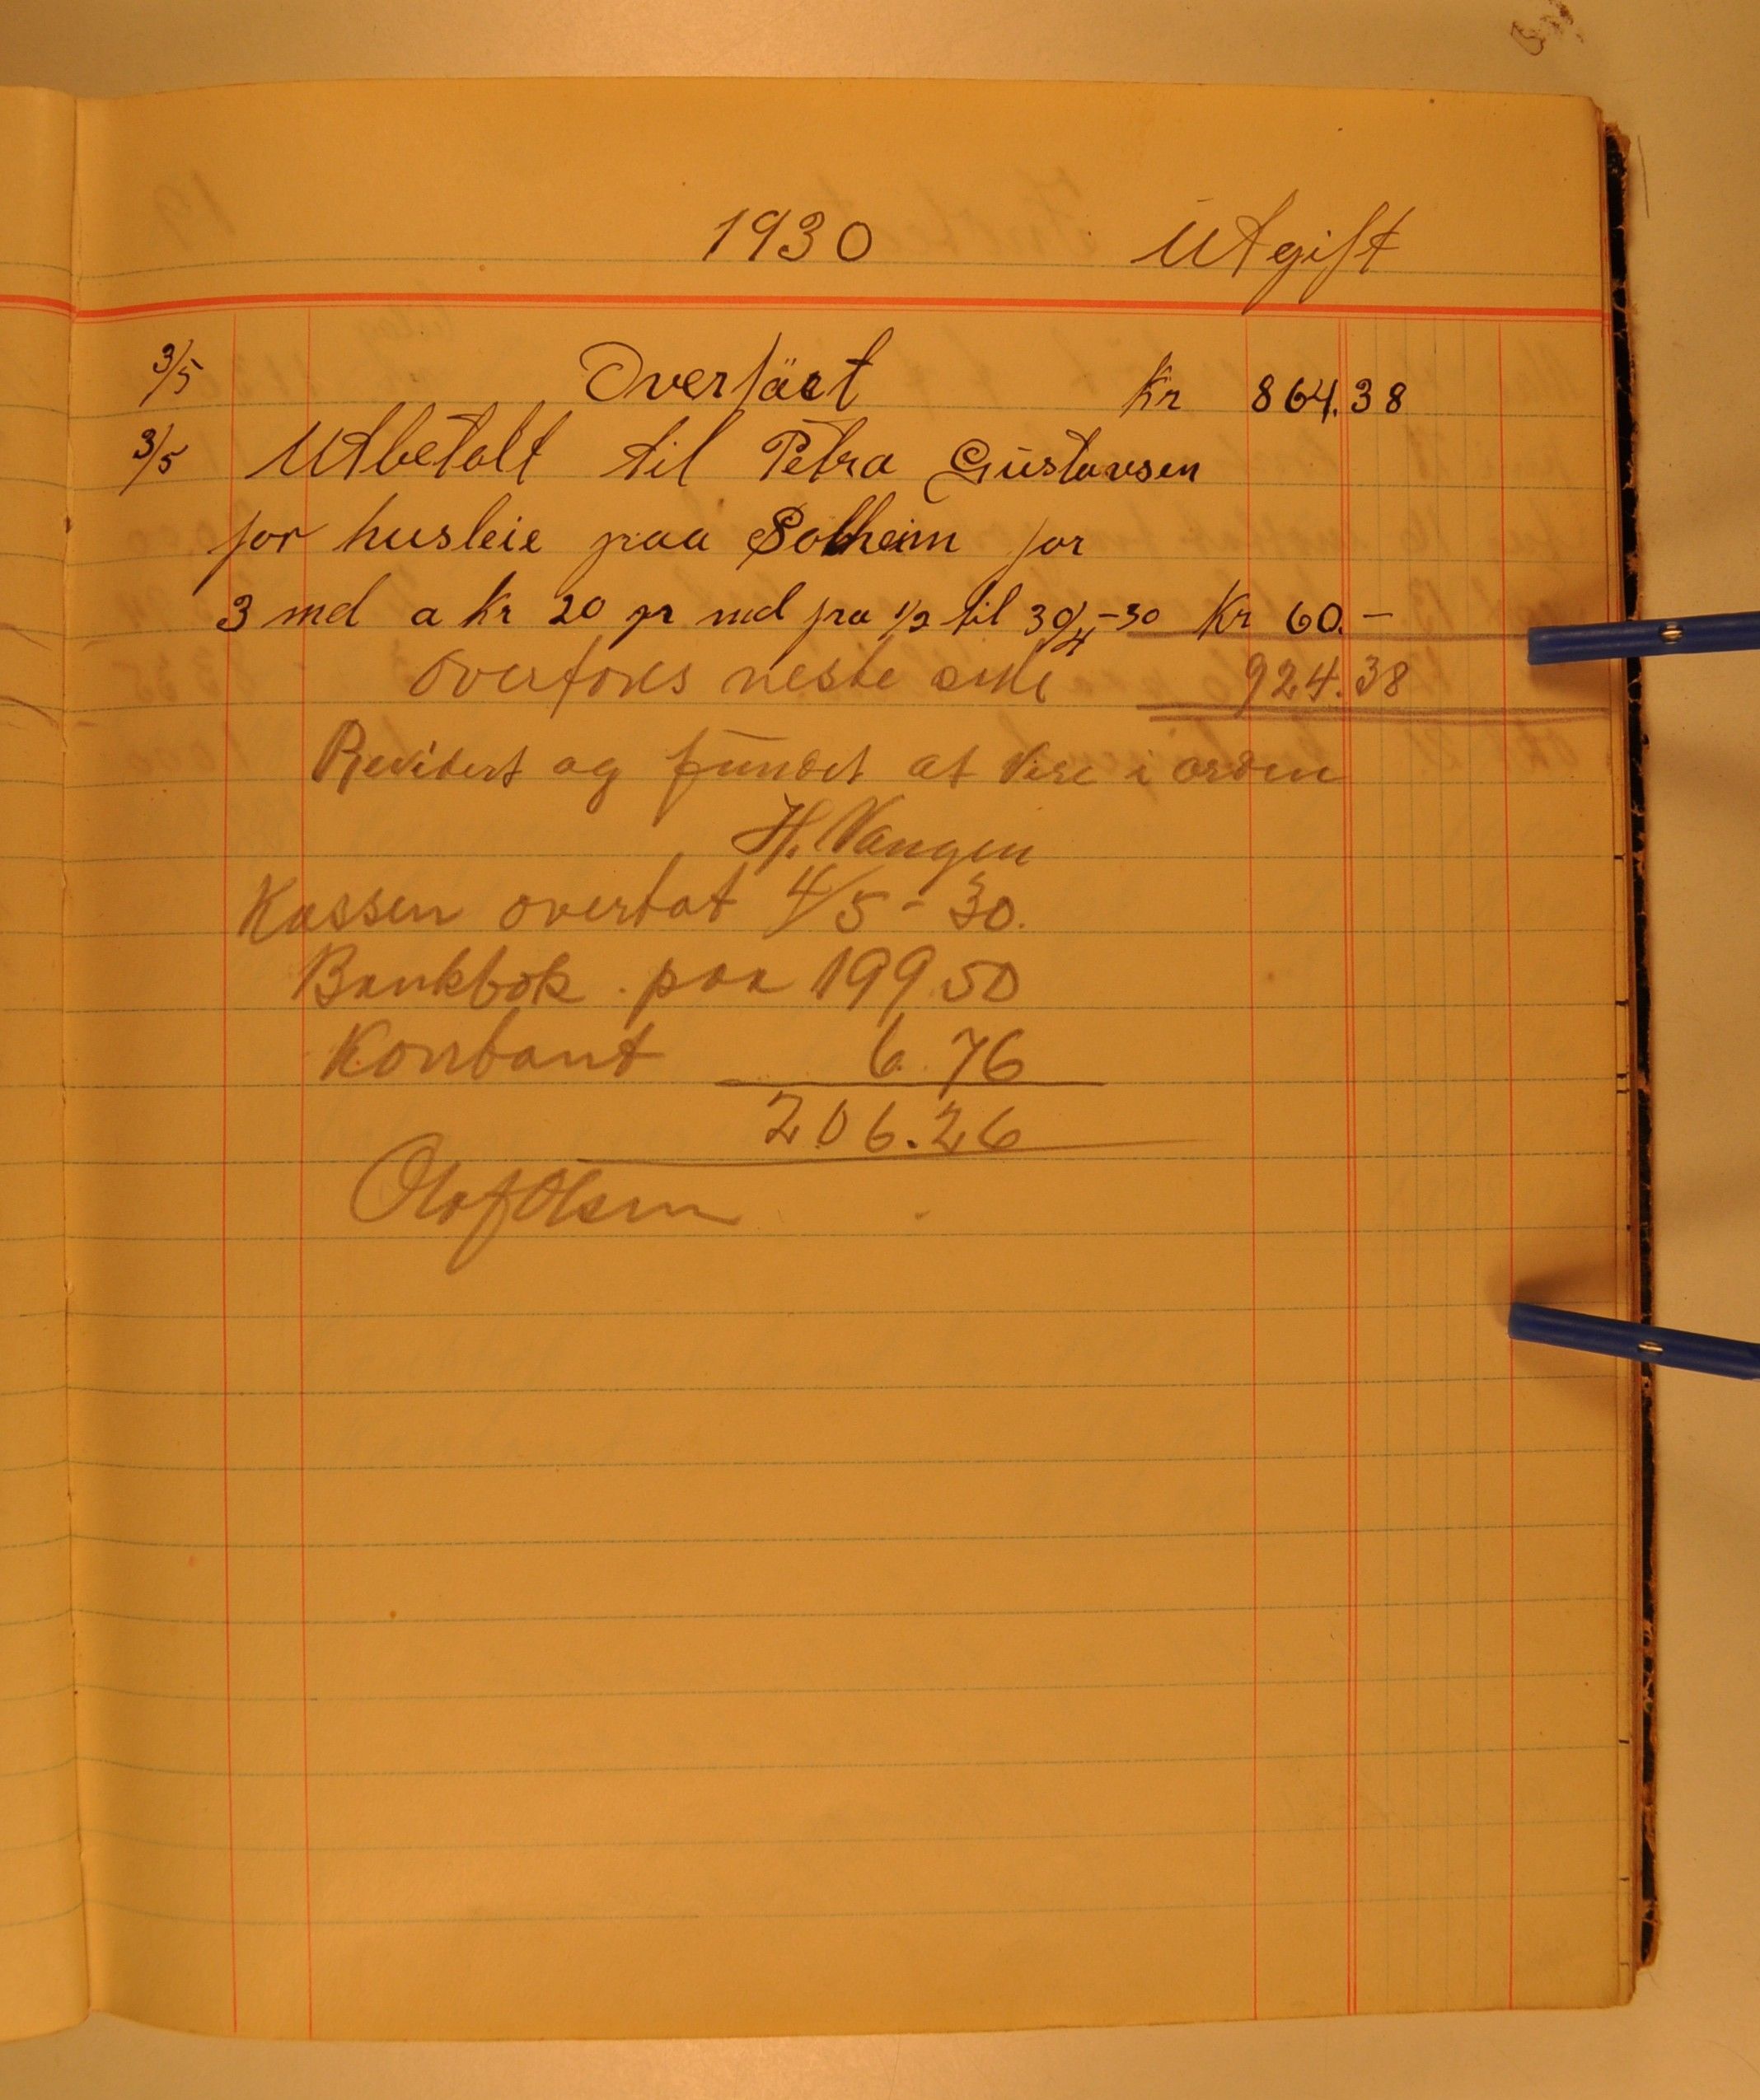 1930 Utgift
3/5 Overfäst Kr 864.38
3/5 Utbetalt til Petra Gustavsen
for husleie paa Solheim for
3 md a Kr 20 pr md fra 1/2 til 30/4-30 Kr 60.-
Overføres neste side 924.38
Revidert og fundet at være i orden
H. Vangen
Kassen overtat 4/5-30.
Bankbok. paa 199.50
Kontant 6.76
206.26
Olaf Olsen